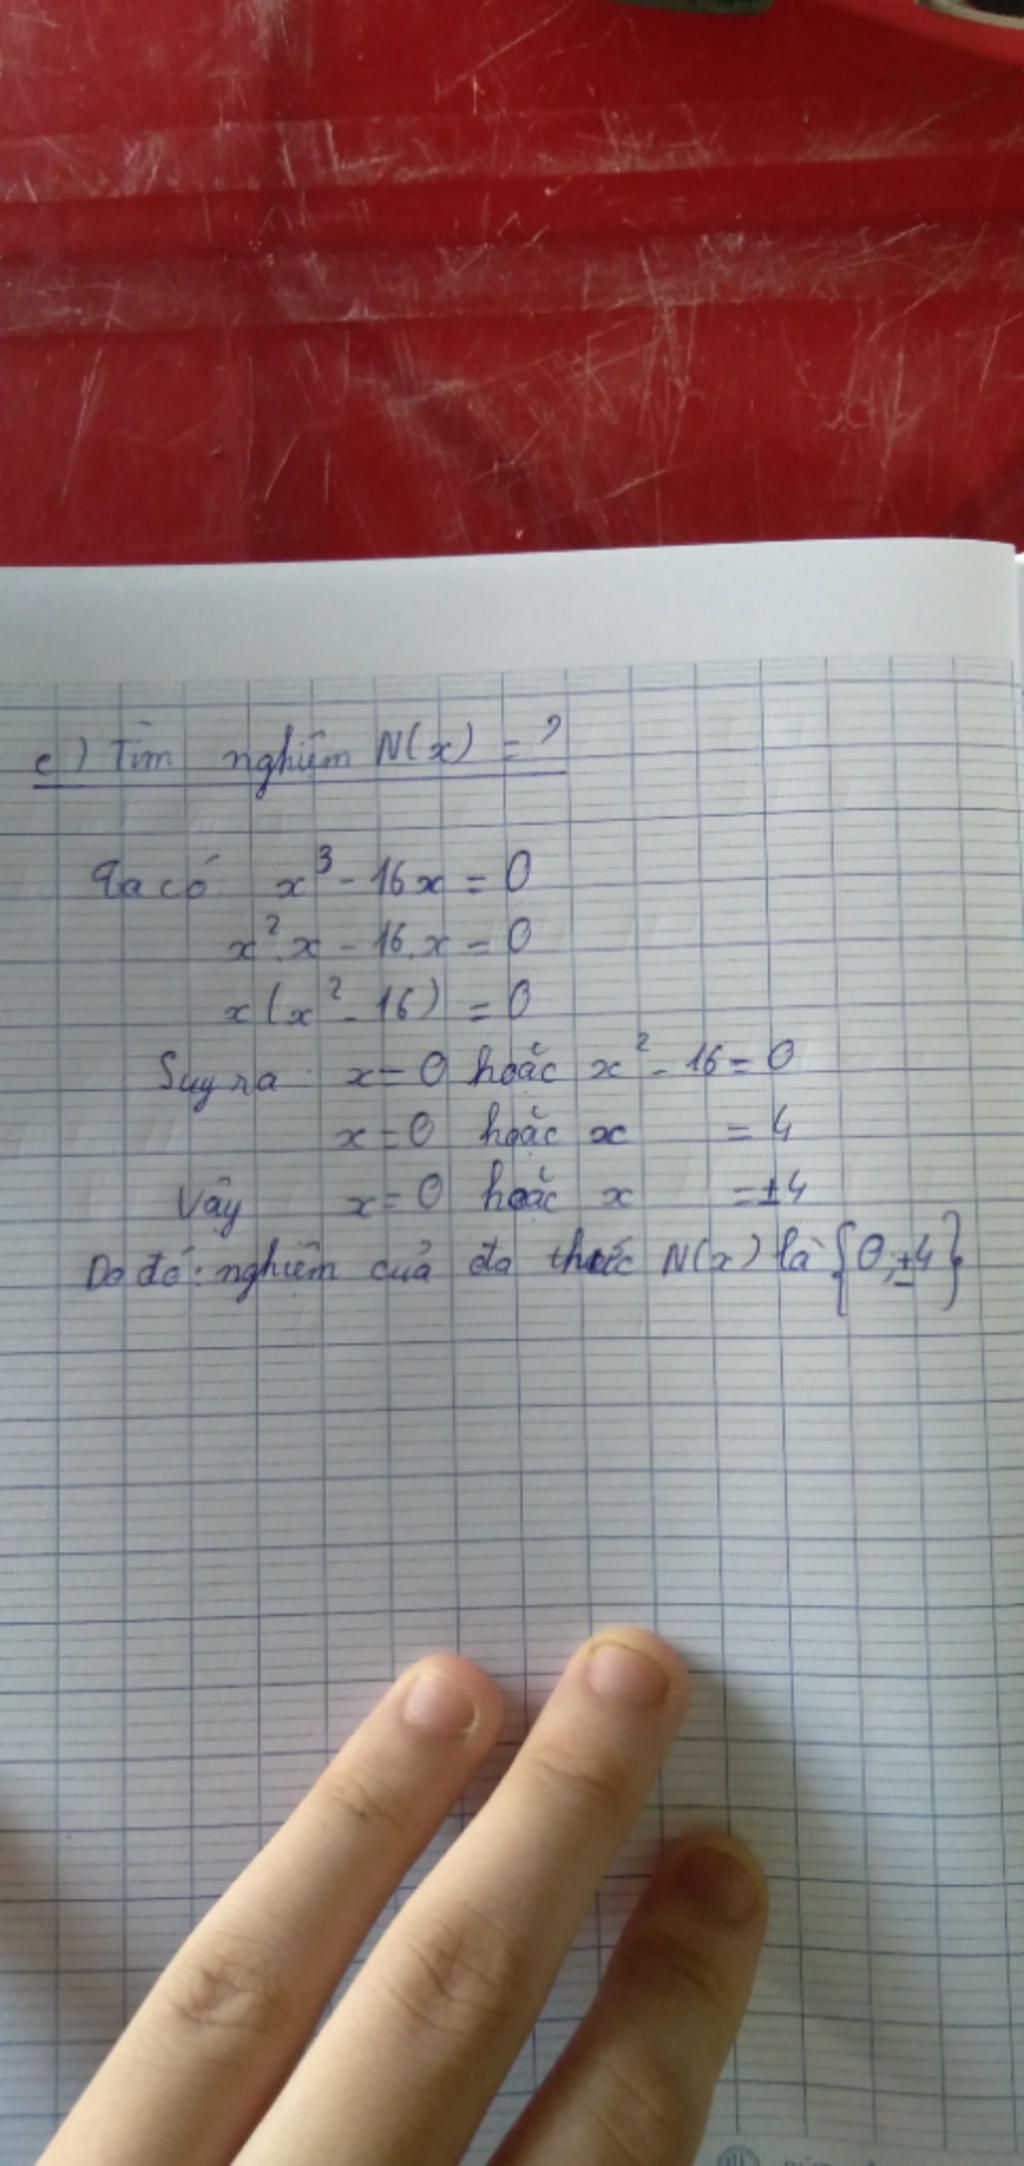 c) Tìm nghiệm N(x) = ?
Ta có x³ - 16x = 0
x².x - 16.x = 0
x(x² - 16) = 0
Suy ra x = 0 hoặc x² - 16 = 0
x = 0 hoặc x = 4
Vậy x = 0 hoặc x = ±4
Do đó: nghiệm của đa thức N(x) là {0; ±4}